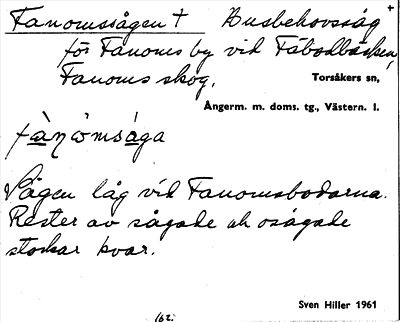 Fanomssågen + Busbehovssåg +
för Fanoms by vid Fäbodbäcken,
Fanoms skog.
Torsåkers sn,
Ångerm. m. doms. tg., Västern. l.
Sågen låg vid Fanomsbodarna.
Rester av sågade och osågade
stockar kvar.
Sven Hiller 1961
162.